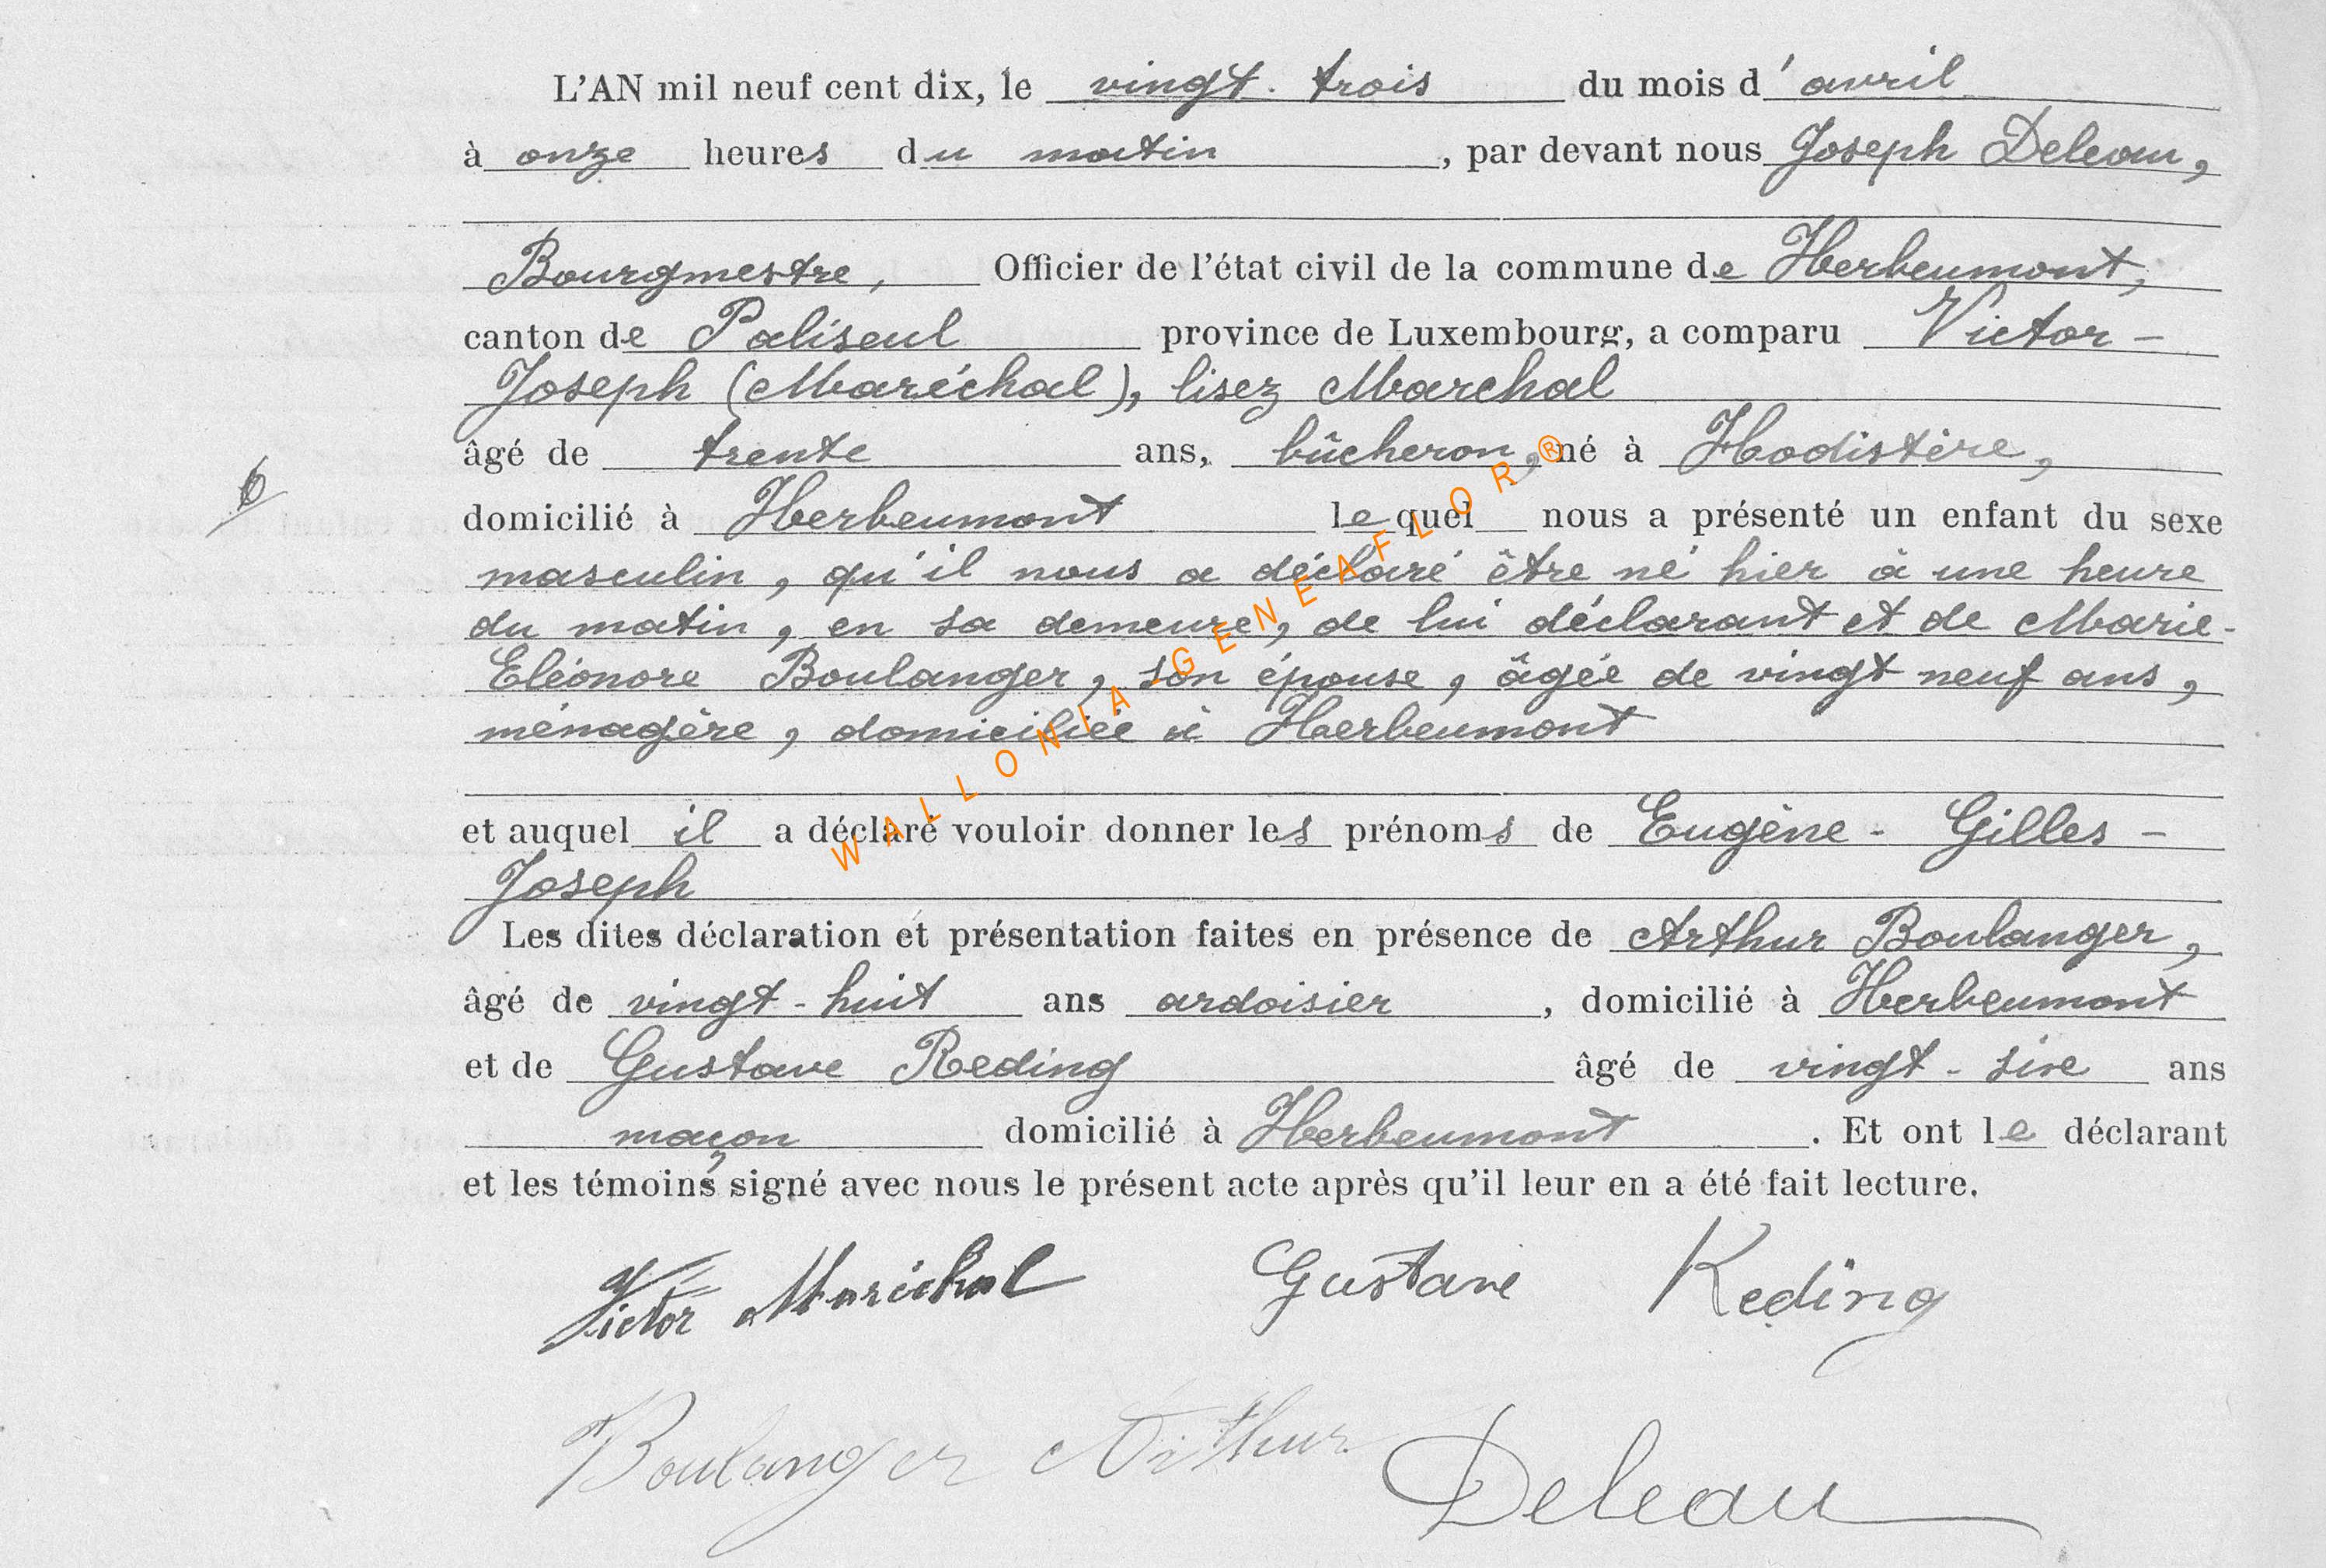 L'AN mil neuf cent dix, le vingt-trois du mois d'avril
à onze heures du matin, par devant nous Joseph Deleau,
Bourgmestre, Officier de l'état civil de la commune de Herbeumont,
canton de Paliseul province de Luxembourg, a comparu Victor-
Joseph (Maréchal), lisez Marchal
âgé de trente ans, bûcheron, né à Hodistère,
domicilié à Herbeumont lequel nous a présenté un enfant du sexe
masculin, qu'il nous a déclaré être né hier à une heure
du matin, en sa demeure, de lui déclarant et de Marie-
Eléonore Boulanger, son épouse, âgée de vingt neuf ans,
ménagère, domiciliée à Herbeumont
et auquel il a déclaré vouloir donner les prénoms de Eugène-Gilles-
Joseph
Les dites déclaration et présentation faites en présence de Arthur Boulanger,
âgé de vingt-huit ans ardoisier, domicilié à Herbeumont
et de Gustave Reding âgé de vingt-six ans
maçon domicilié à Herbeumont. Et ont le déclarant
et les témoins signé avec nous le présent acte après qu'il leur en a été fait lecture.
Victor Maréchal Gustave Reding
Boulanger Arthur Deleau
WALLONIA-GENEAFLOR®